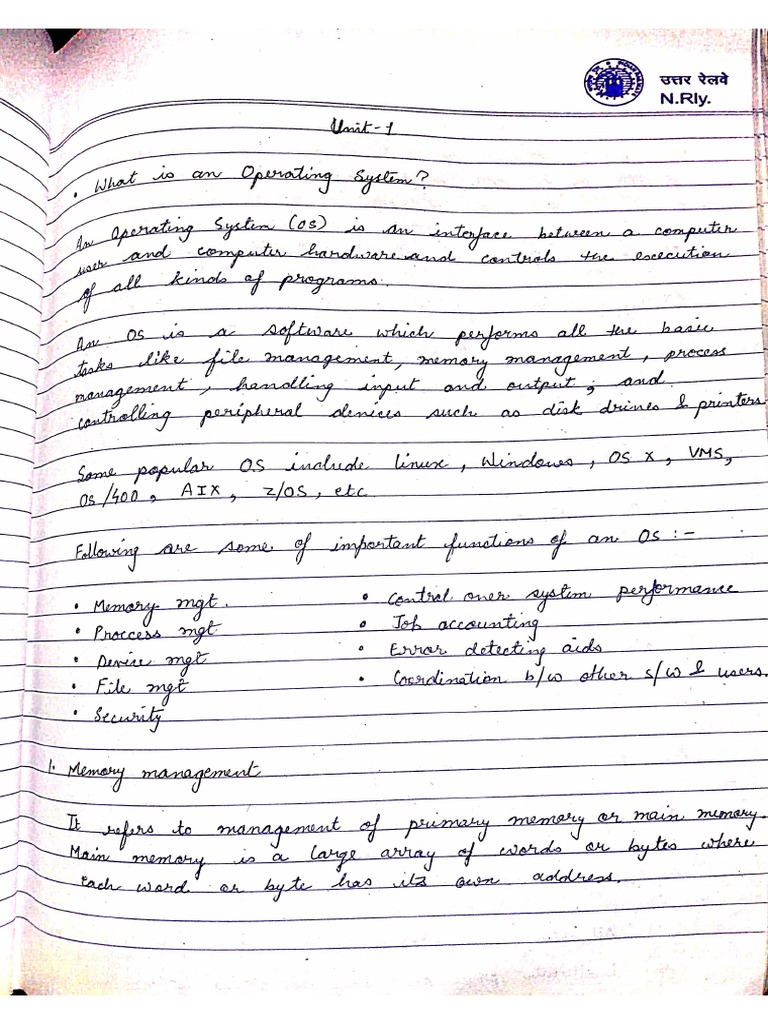 उत्तर रेलवे
N.Rly.
Unit-1
• What is an Operating System?
An Operating System (OS) is an interface between a computer
user and computer hardware and controls the execution
of all kinds of programs.
An OS is a software which performs all the basic
tasks like file management, memory management, process
management, handling input and output, and
controlling peripheral devices such as disk drives & printers.
Some popular OS include linux, Windows, OS X, VMS,
OS/400, AIX, z/OS, etc
Following are some of important functions of an OS :-
• Memory mgt.
• Proccess mgt
• Device mgt
• File mgt
• Security
• Control over system performance
• Job accounting
• Error detecting aids
• Coordination b/w other s/w & users.
1. Memory management
It refers to management of primary memory or main memory.
Main memory is a large array of words or bytes where
each word or byte has its own address.